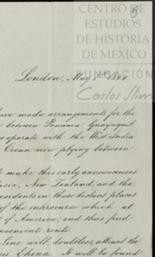 CENTRO DE
ESTUDIOS
DE HISTORIA
DE MEXICO
FUNDACIÓN
Carlos Slim
London, May
have made arrangements for the
between Panama, Guayaquil,
operate with the West India
Ocean now plying between
make this early announcement
New Zealand, and the
in these distant places
of the intercourse which at
of America, and thus find
route
Line will, doubtless, attract the
China. It will be found